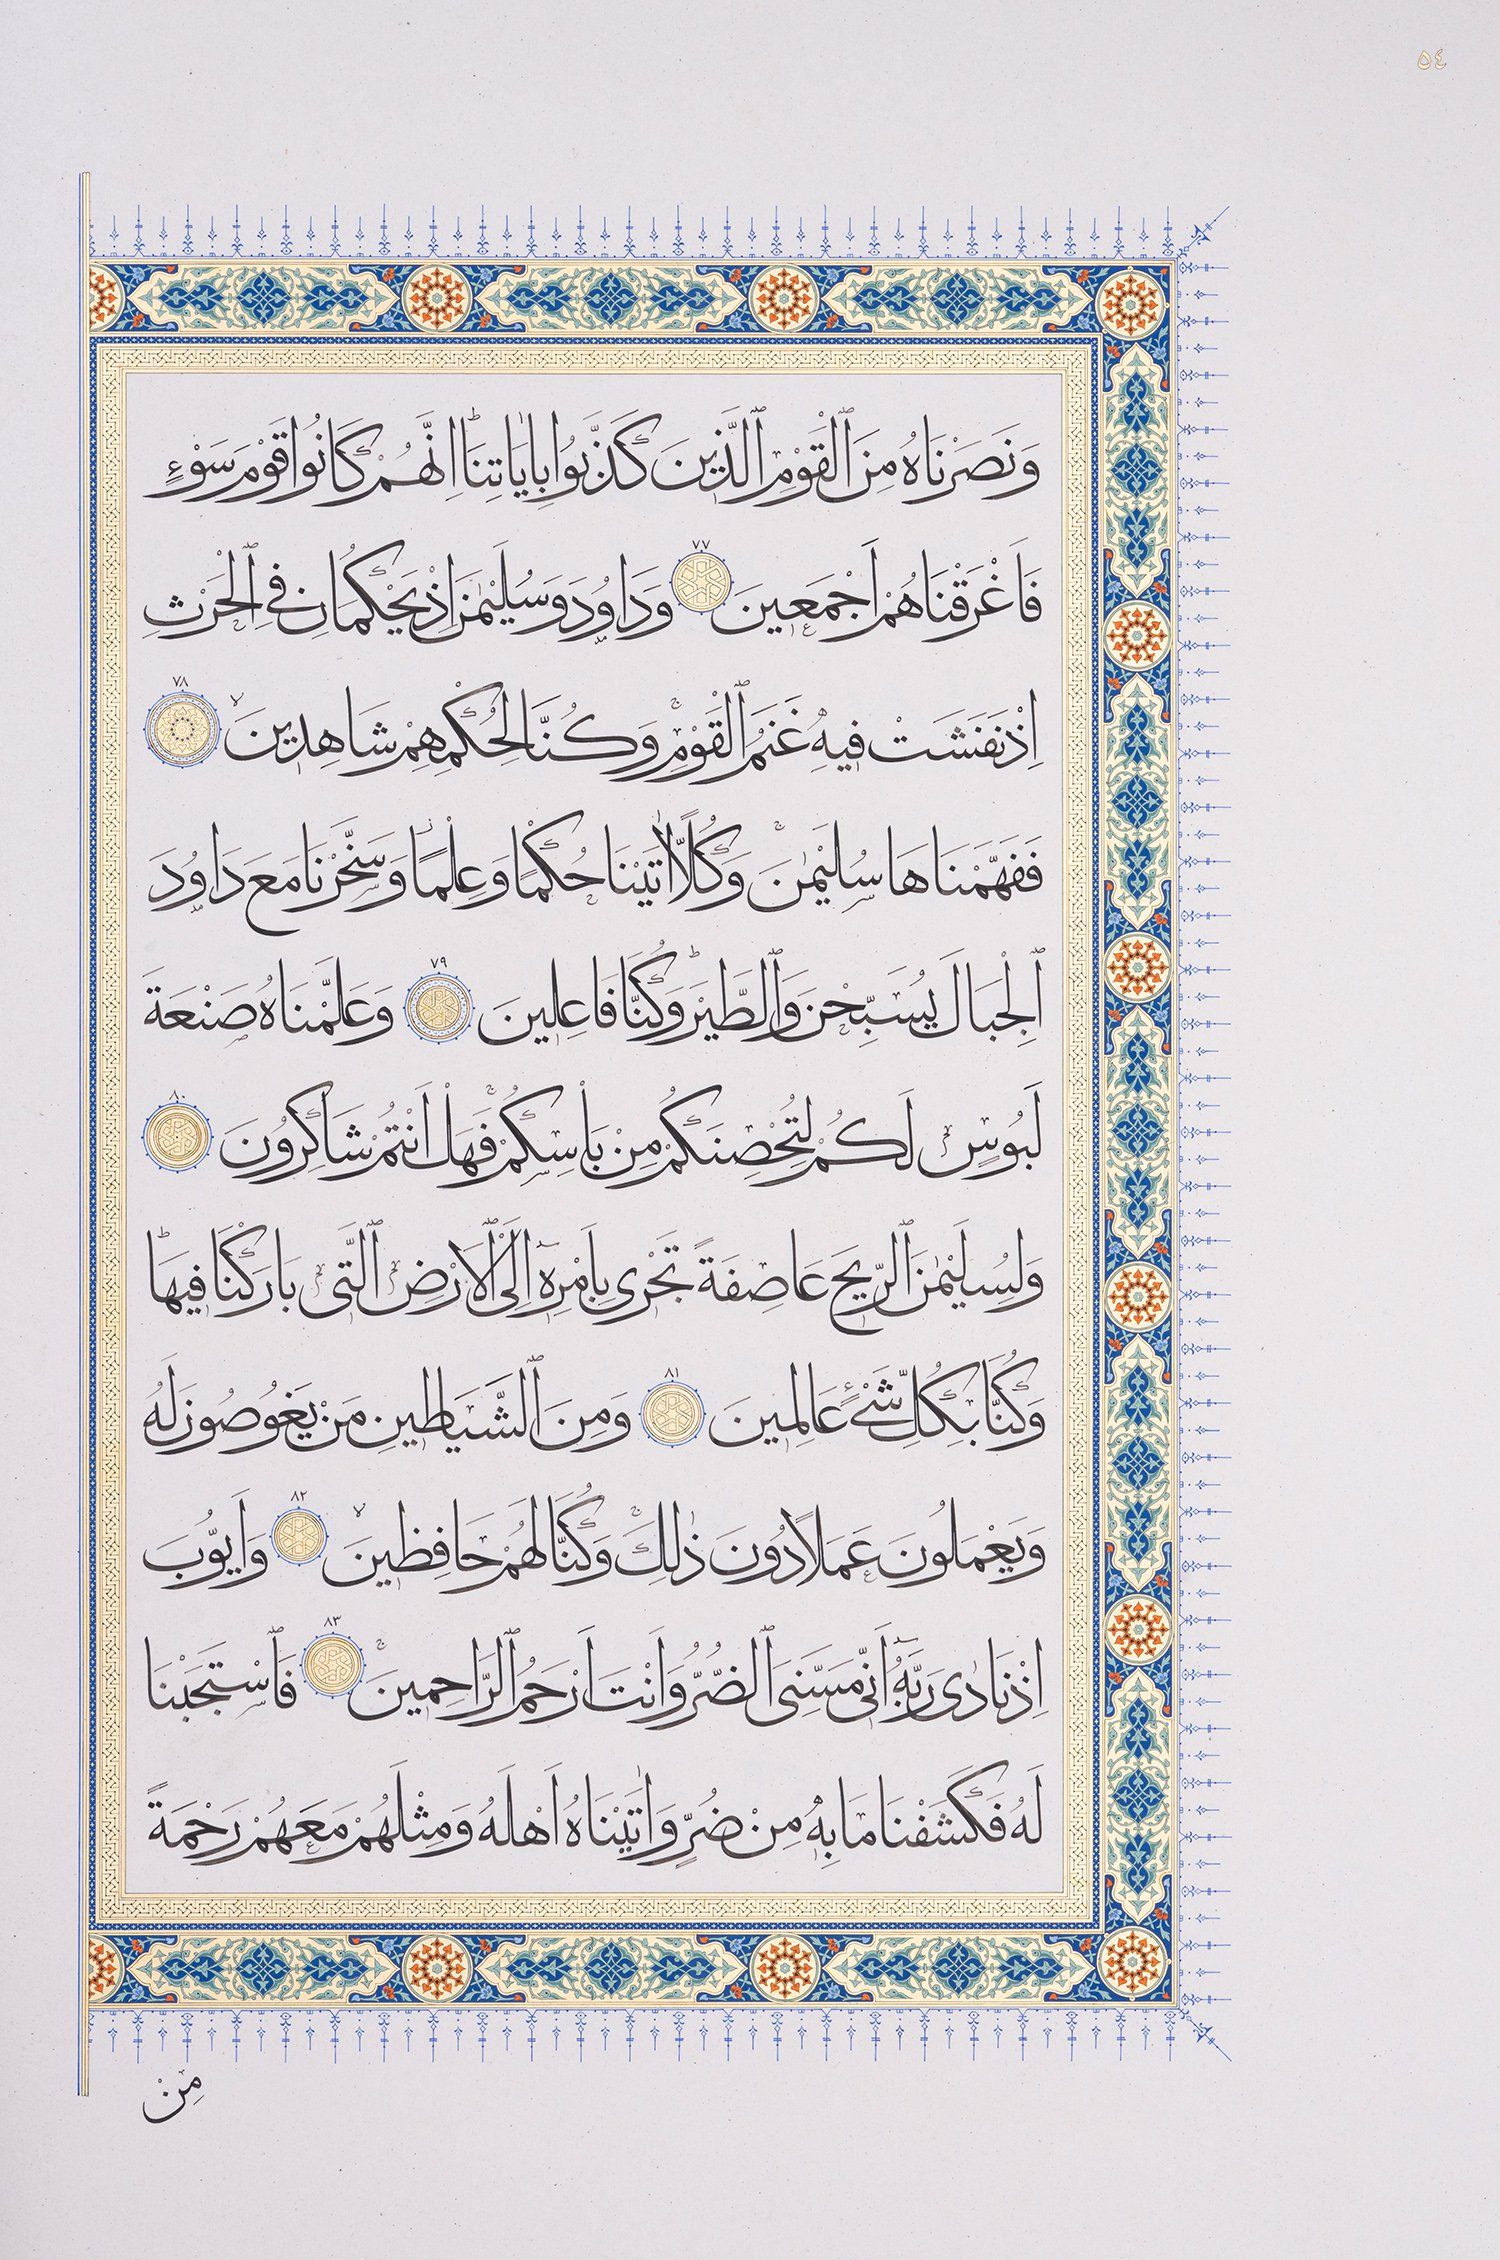 ٥٤
وَنَصَرْنَاهُ مِنَ ٱلْقَوْمِ ٱلَّذِينَ كَذَّبُوا بِاٰيَاتِنَاۜ اِنَّهُمْ كَانُوا قَوْمَ سَوْءٍ
فَاَغْرَقْنَاهُمْ اَجْمَعِينَ ٧٧ وَدَاوُدَ وَسُلَيْمٰنَ اِذْ يَحْكُمَانِ فِى ٱلْحَرْثِ
اِذْ نَفَشَتْ فِيهِ غَنَمُ ٱلْقَوْمِۚ وَكُنَّا لِحُكْمِهِمْ شَاهِدِينَۙ ٧٨
فَفَهَّمْنَاهَا سُلَيْمٰنَۚ وَكُلًّا اٰتَيْنَا حُكْمًا وَعِلْمًاۘ وَسَخَّرْنَا مَعَ دَاوُدَ
ٱلْجِبَالَ يُسَبِّحْنَ وَٱلطَّيْرَۜ وَكُنَّا فَاعِلِينَ ٧٩ وَعَلَّمْنَاهُ صَنْعَةَ
لَبُوسٍ لَكُمْ لِتُحْصِنَكُمْ مِنْ بَاْسِكُمْۚ فَهَلْ اَنْتُمْ شَاكِرُونَ ٨٠
وَلِسُلَيْمٰنَ ٱلرِّيحَ عَاصِفَةً تَجْرِى بِاَمْرِهِٓ اِلَى ٱلْاَرْضِ ٱلَّتِى بَارَكْنَا فِيهَاۜ
وَكُنَّا بِكُلِّ شَىْءٍ عَالِمِينَ ٨١ وَمِنَ ٱلشَّيَاطِينِ مَنْ يَغُوصُونَ لَهُ
وَيَعْمَلُونَ عَمَلًا دُونَ ذٰلِكَۚ وَكُنَّا لَهُمْ حَافِظِينَۙ ٨٢ وَاَيُّوبَ
اِذْ نَادٰى رَبَّهُٓ اَنِّى مَسَّنِىَ ٱلضُّرُّ وَاَنْتَ اَرْحَمُ ٱلرَّاحِمِينَۚ ٨٣ فَٱسْتَجَبْنَا
لَهُ فَكَشَفْنَا مَا بِهِ مِنْ ضُرٍّ وَاٰتَيْنَاهُ اَهْلَهُ وَمِثْلَهُمْ مَعَهُمْ رَحْمَةً
مِنْ